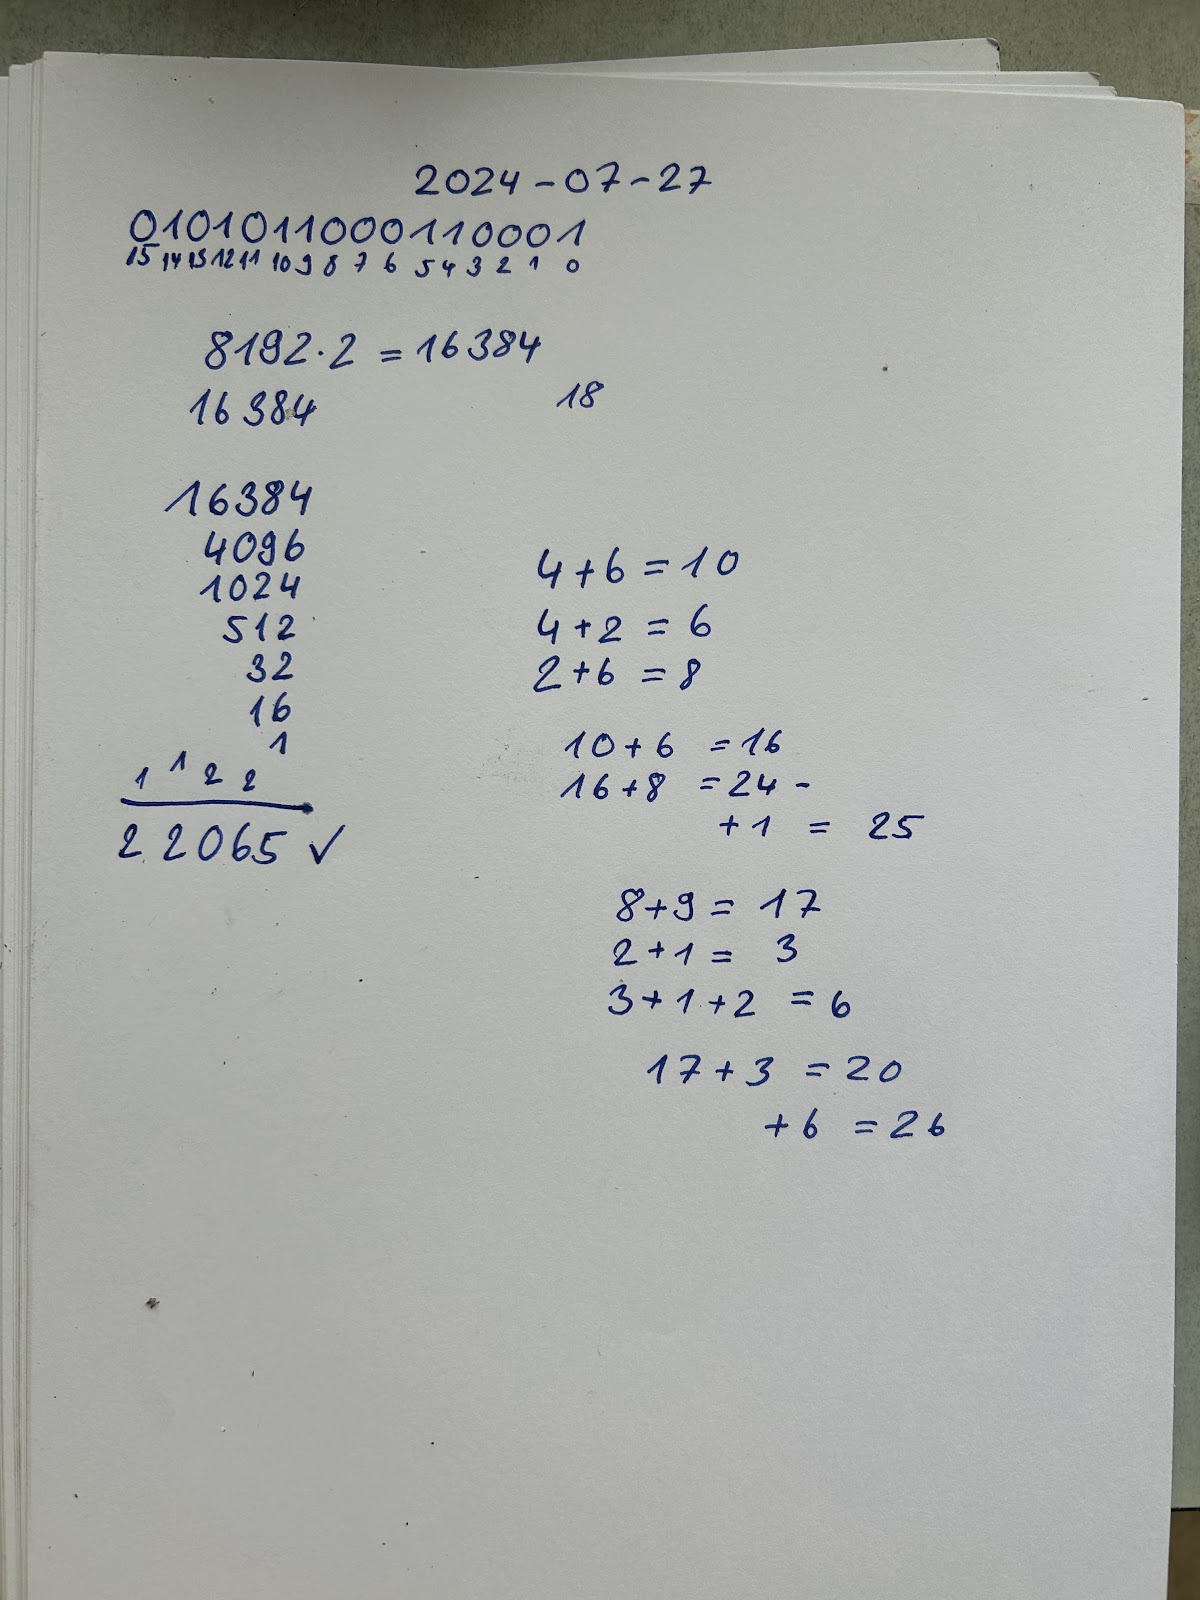 2024-07-27
0101011000110001
15 14 13 12 11 10 9 8 7 6 5 4 3 2 1 0
8192·2 = 16384
16384
18
16384
4096
1024
512
32
16
1
1 1 2 2
22065 ✓
4+6 = 10
4+2 = 6
2+6 = 8
10+6 = 16
16+8 = 24 -
+1 = 25
8+9 = 17
2+1 = 3
3+1+2 = 6
17+3 = 20
+6 = 26